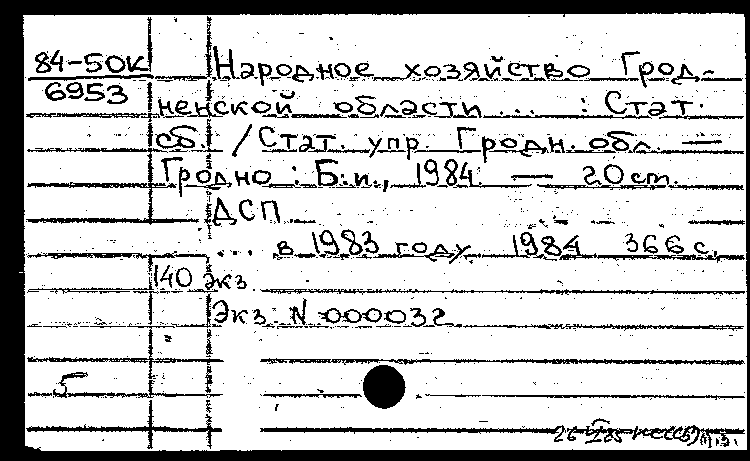 84-50К
6953
Народное хозяйство Грод-
ненской области ... : Стат.
сб. / Стат. упр. Гродн. обл. —
Гродно : Б.и., 1984. — 20 см.
ДСП
... в 1983 году. 1984. 366 с.
140 экз.
Экз. N 000032
5